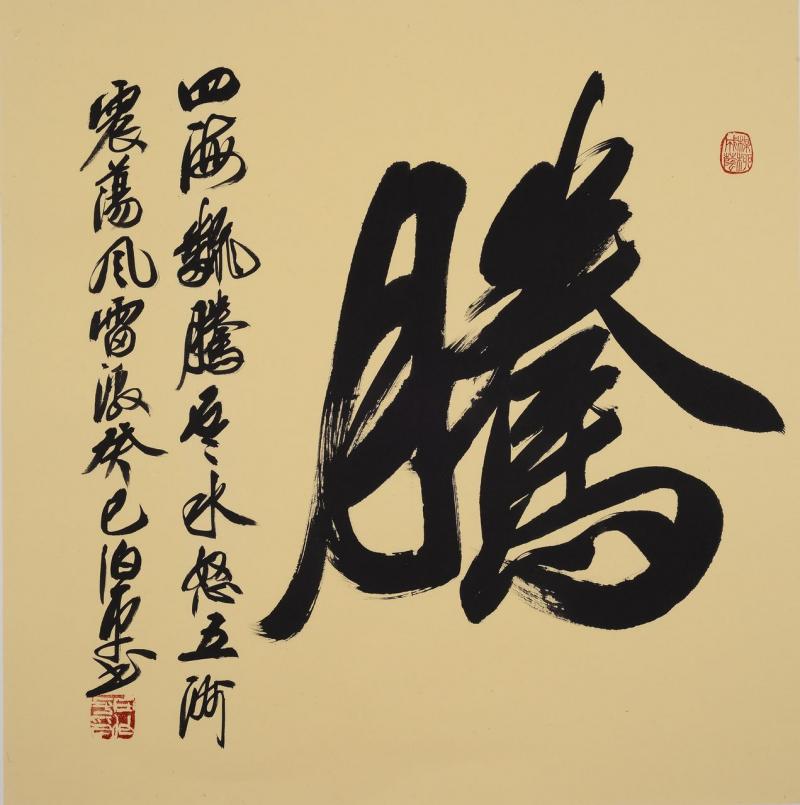 騰
四海翻騰雲水怒五洲
震蕩風雷激癸巳泊書